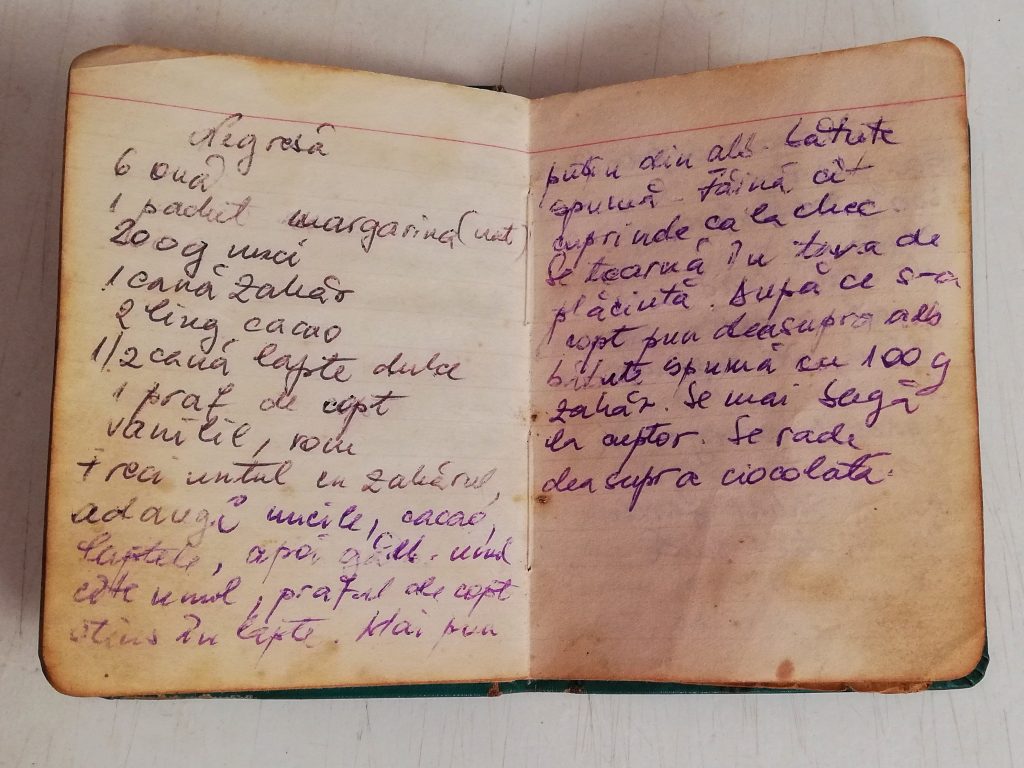 Negresă
6 ouă
1 pachet margarina (unt)
200g nuci
1 cană zahăr
2 ling cacao
1/2 cană lapte dulce
1 praf de copt
vanilie, rom
freci untul cu zahărul,
adaugi nucile, cacao,
laptele, apoi gălb. unul
câte unul, praful de copt
stins în lapte. Mai pun
puțin din alb. bătute
spumă. Făină cît
cuprinde ca la chec.
Se toarnă în tava de
plăcintă. După ce s-a
copt pun deasupra alb
bătute spumă cu 100 g
zahăr. Se mai bagă
la cuptor. Se rade
deasupra ciocolată.